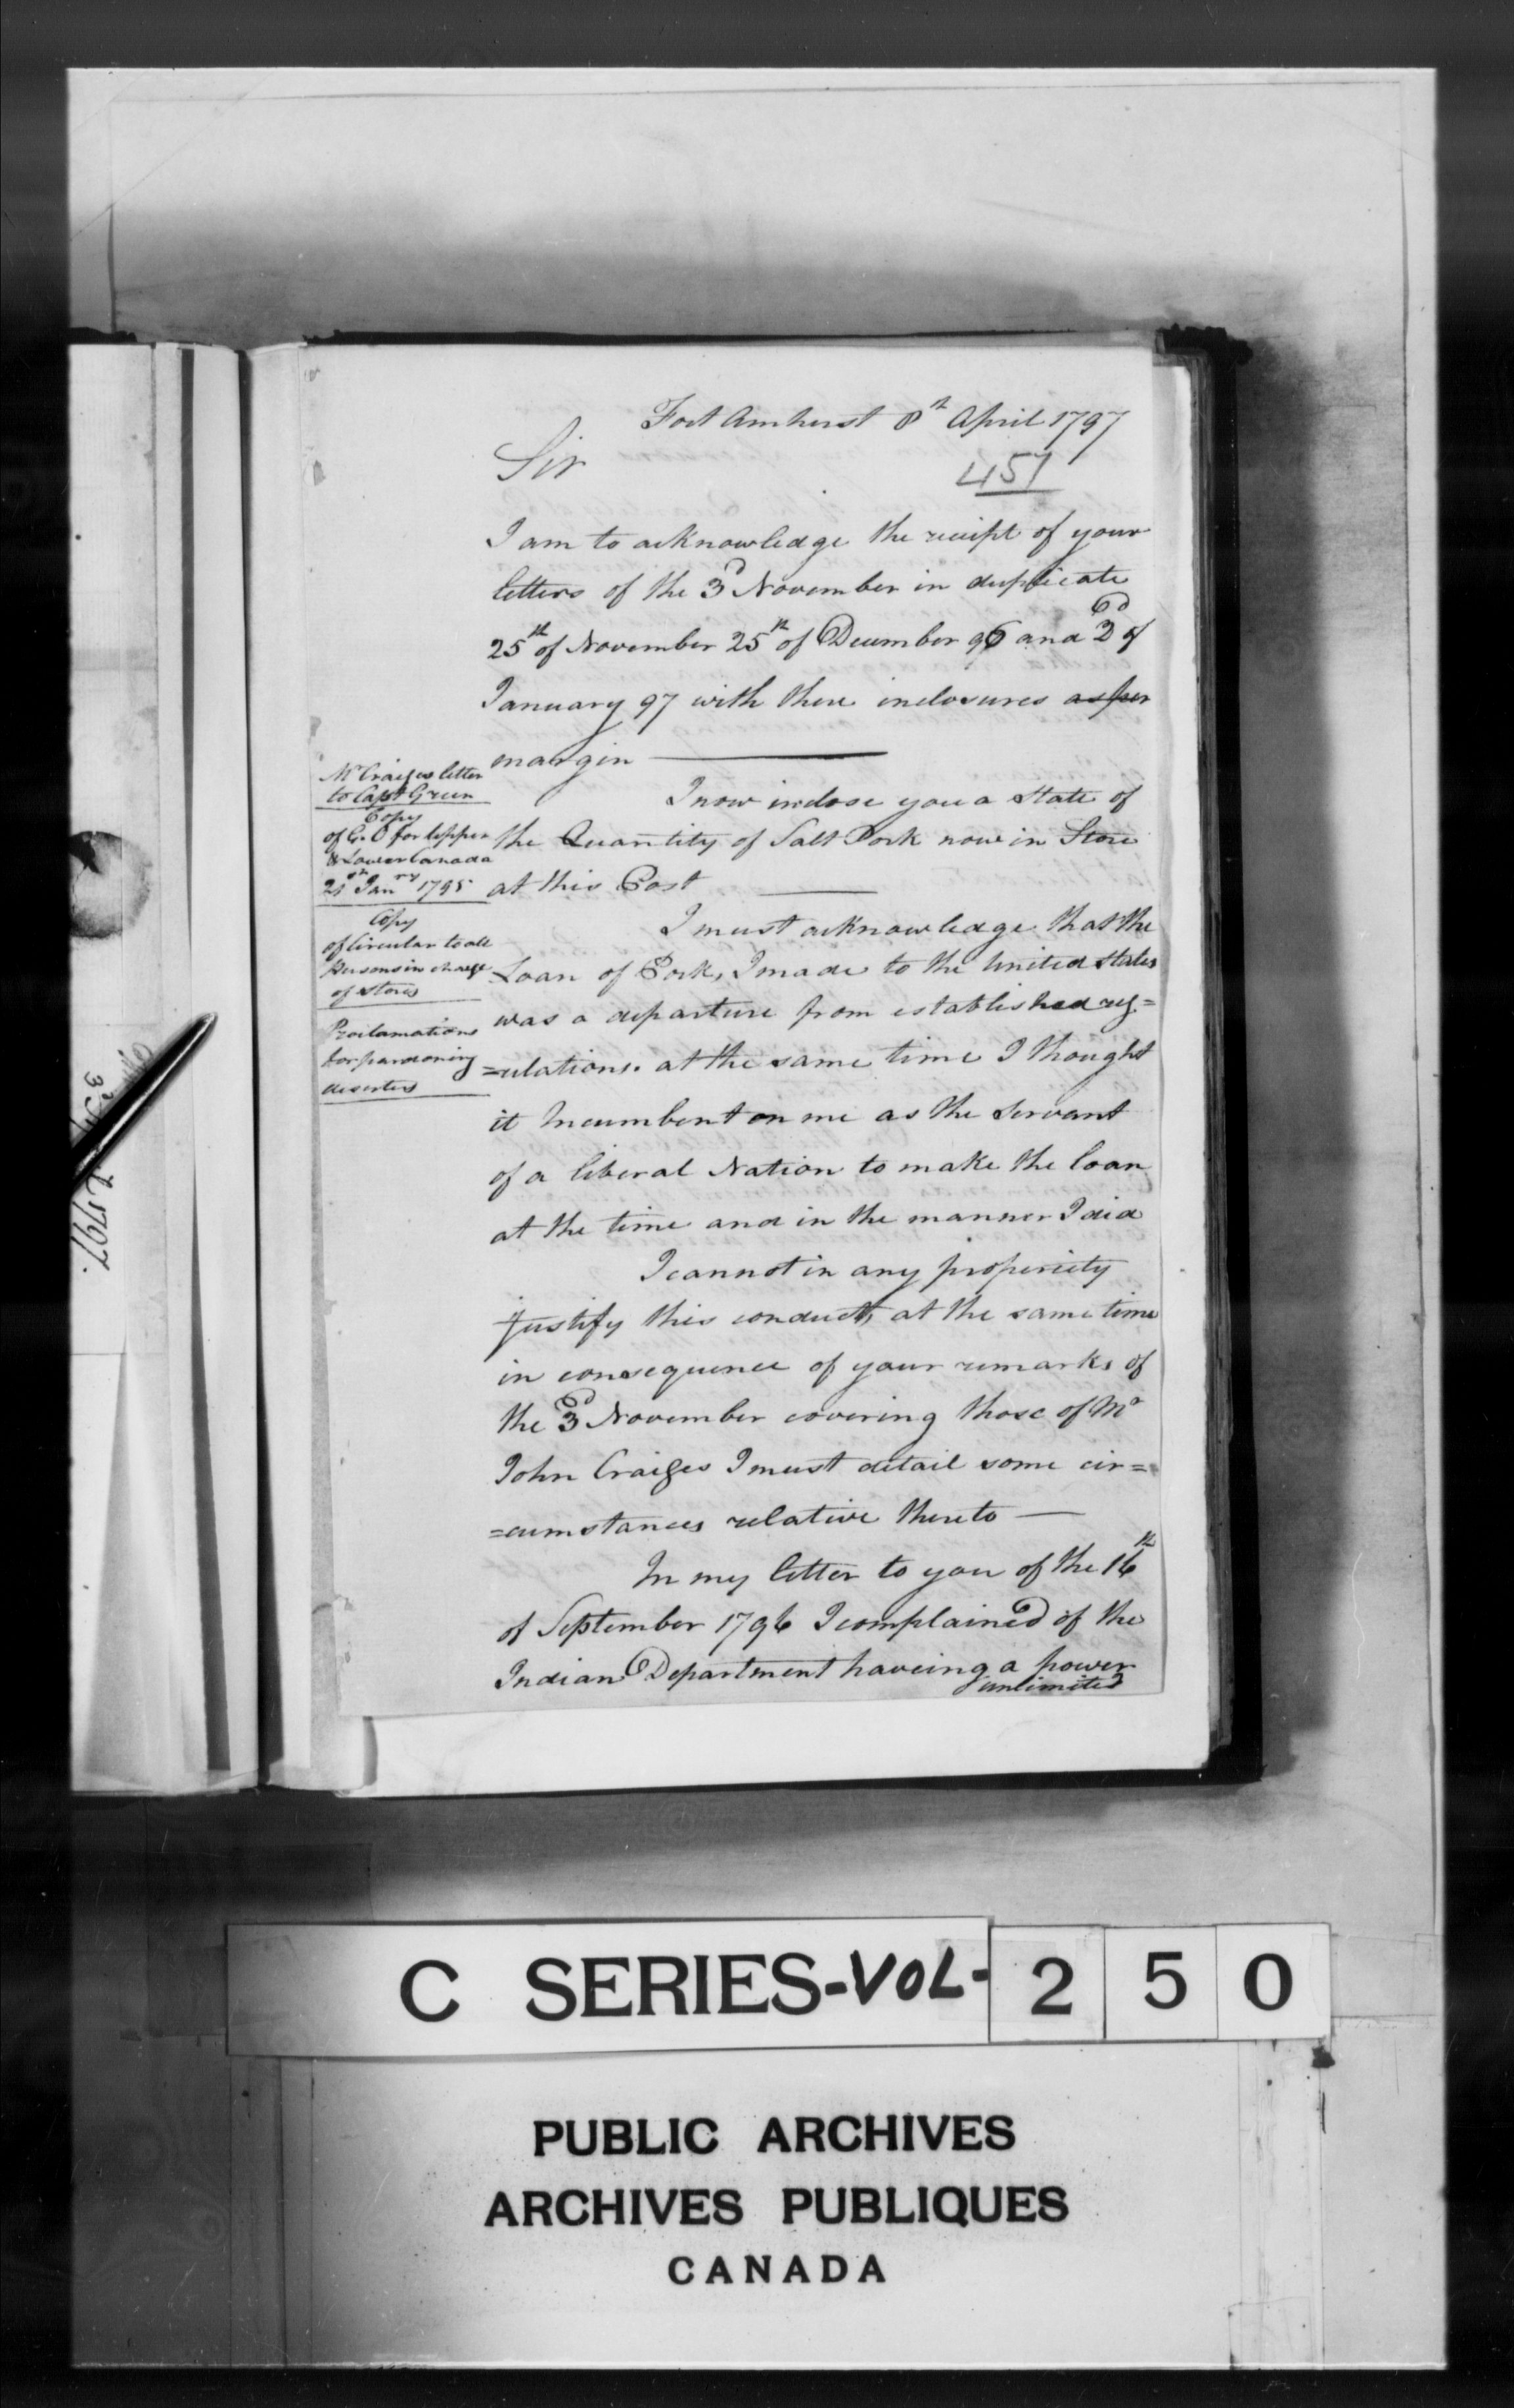 Fort Amherst 8th April 1797
Sir
457
I am to acknowledge the reciept of your
letters of the 3d November in duplicate
25th of November 25th of December 96 and 2d of
January 97 with there inclosures as per
margin
Mr Craiges letter
to Capt Green
Copy
of G.O for Upper
& Lower Canada
21st Janry 1795
Copy
of Circular to all
Persons in charge
of stores
Proclamations
for pardoning
deserters
I now inclose you a State of
the Quantity of Salt Pork now in Store
at this Post
I must acknowledge that the
Loan of Pork, I made to the United States
was a departure from established reg=
=ulations. at the same time I thought
it Incumbent on me as the Servant
of a liberal Nation to make the loan
at the time and in the manner I did
I cannot in any properiety
justify this conduct, at the same time
in consequence of your remarks of
the 3d November covering those of Mr
John Craiges I must detail some cir=
=cumstances relative thereto —
In my letter to you of the 16th
of September 1796 I complained of the
Indian Department haveing a power
unlimited
1797.
C SERIES-VOL-250
PUBLIC ARCHIVES
ARCHIVES PUBLIQUES
CANADA